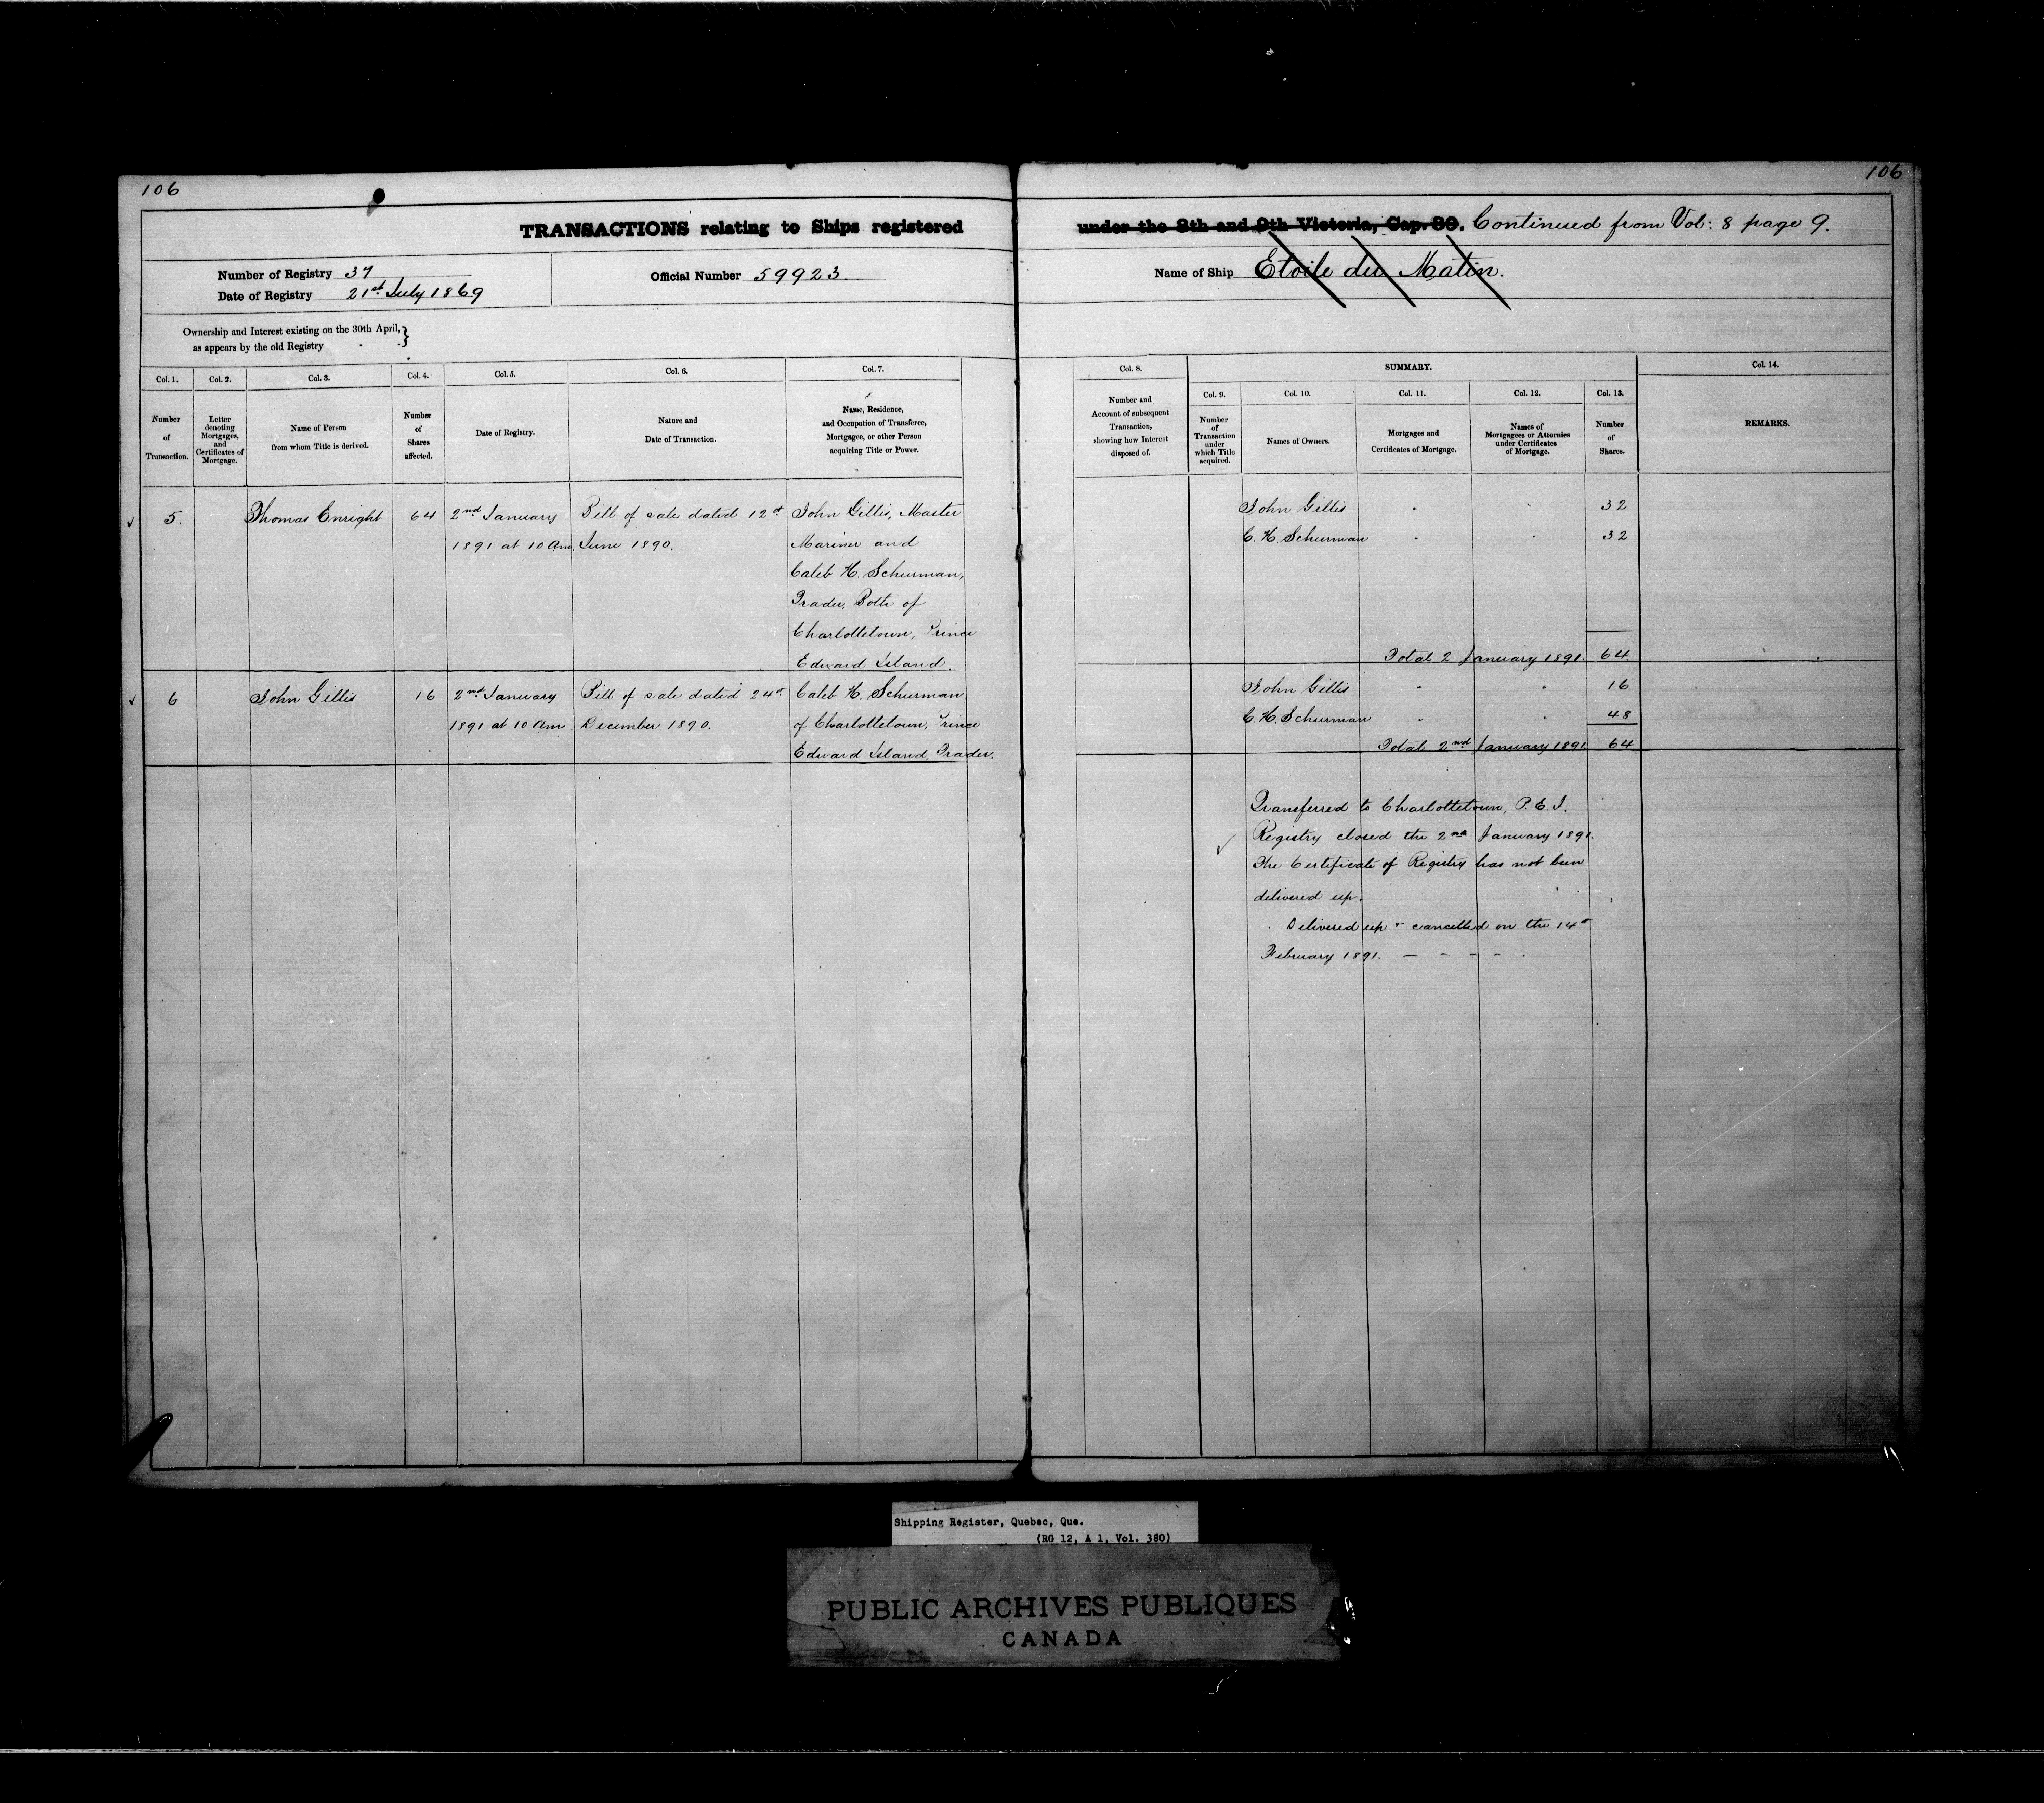 106
106
TRANSACTIONS relating to Ships registered under the 8th and 9th Victoria, Cap. 89. Continued from Vol: 8 page 9.
Number of Registry 37
Date of Registry 21st July 1869
Official Number 59923.
Name of Ship Etoile du Matin.
Ownership and Interest existing on the 30th April,
as appears by the old Registry
Col. 1.
Number
of
Transaction.
Col. 2.
Letter
denoting
Mortgages,
and
Certificates of
Mortgage.
Col. 3.
Name of Person
from whom Title is derived.
Col. 4.
Number
of
Shares
affected.
Col. 5.
Date of Registry.
Col. 6.
Nature and
Date of Transaction.
Col. 7.
Name, Residence,
and Occupation of Transferee,
Mortgagee, or other Person
acquiring Title or Power.
Col. 8.
Number and
Account of subsequent
Transaction,
showing how Interest
disposed of.
SUMMARY.
Col. 9.
Number
of
Transaction
under
which Title
acquired.
Col. 10.
Names of Owners.
Col. 11.
Mortgages and
Certificates of Mortgage.
Col. 12.
Names of
Mortgagees or Attornies
under Certificates
of Mortgage.
Col. 13.
Number
of
Shares.
Col. 14.
REMARKS.
5.
Thomas Enright
64
2nd January
1891 at 10 am
Bill of sale dated 12th
June 1890.
John Gillis, Master
Mariner and
Caleb H. Schurman,
Trader, Both of
Charlottetown, Prince
Edward Island.
John Gillis 32
C. H. Schurman 32
Total 2 January 1891. 64
6
John Gillis
16
2nd January
1891 at 10 am
Bill of sale dated 24th
December 1890.
Caleb H. Schurman
of Charlottetown, Prince
Edward Island, Trader.
John Gillis 16
C. H. Schurman 48
Total 2nd January 1891 64
Transferred to Charlottetown, P. E. I.
Registry closed the 2nd January 1891.
The Certificate of Registry has not been
delivered up.
Delivered up & cancelled on the 14th
February 1891.
Shipping Register, Quebec, Que.
(RG 12, A 1, Vol. 380)
PUBLIC ARCHIVES PUBLIQUES
CANADA